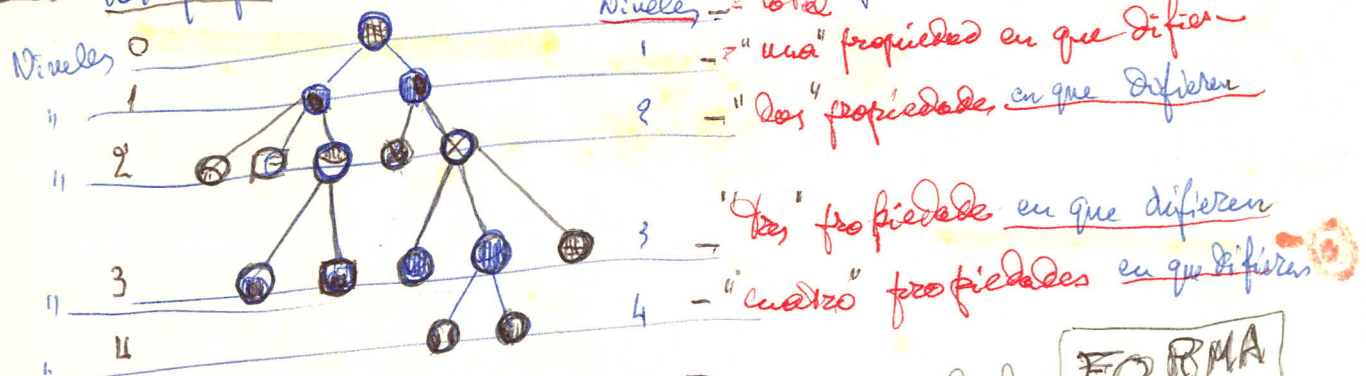 Niveles - = total
Niveles 0 1 - = "una" propiedad en que difier
" 1 2 - "dos" propiedades en que difieren
" 2
3 - "tres" propiedades en que difieren
" 3 4 - "cuatro" propiedades en que difieren
" 4
FORMA